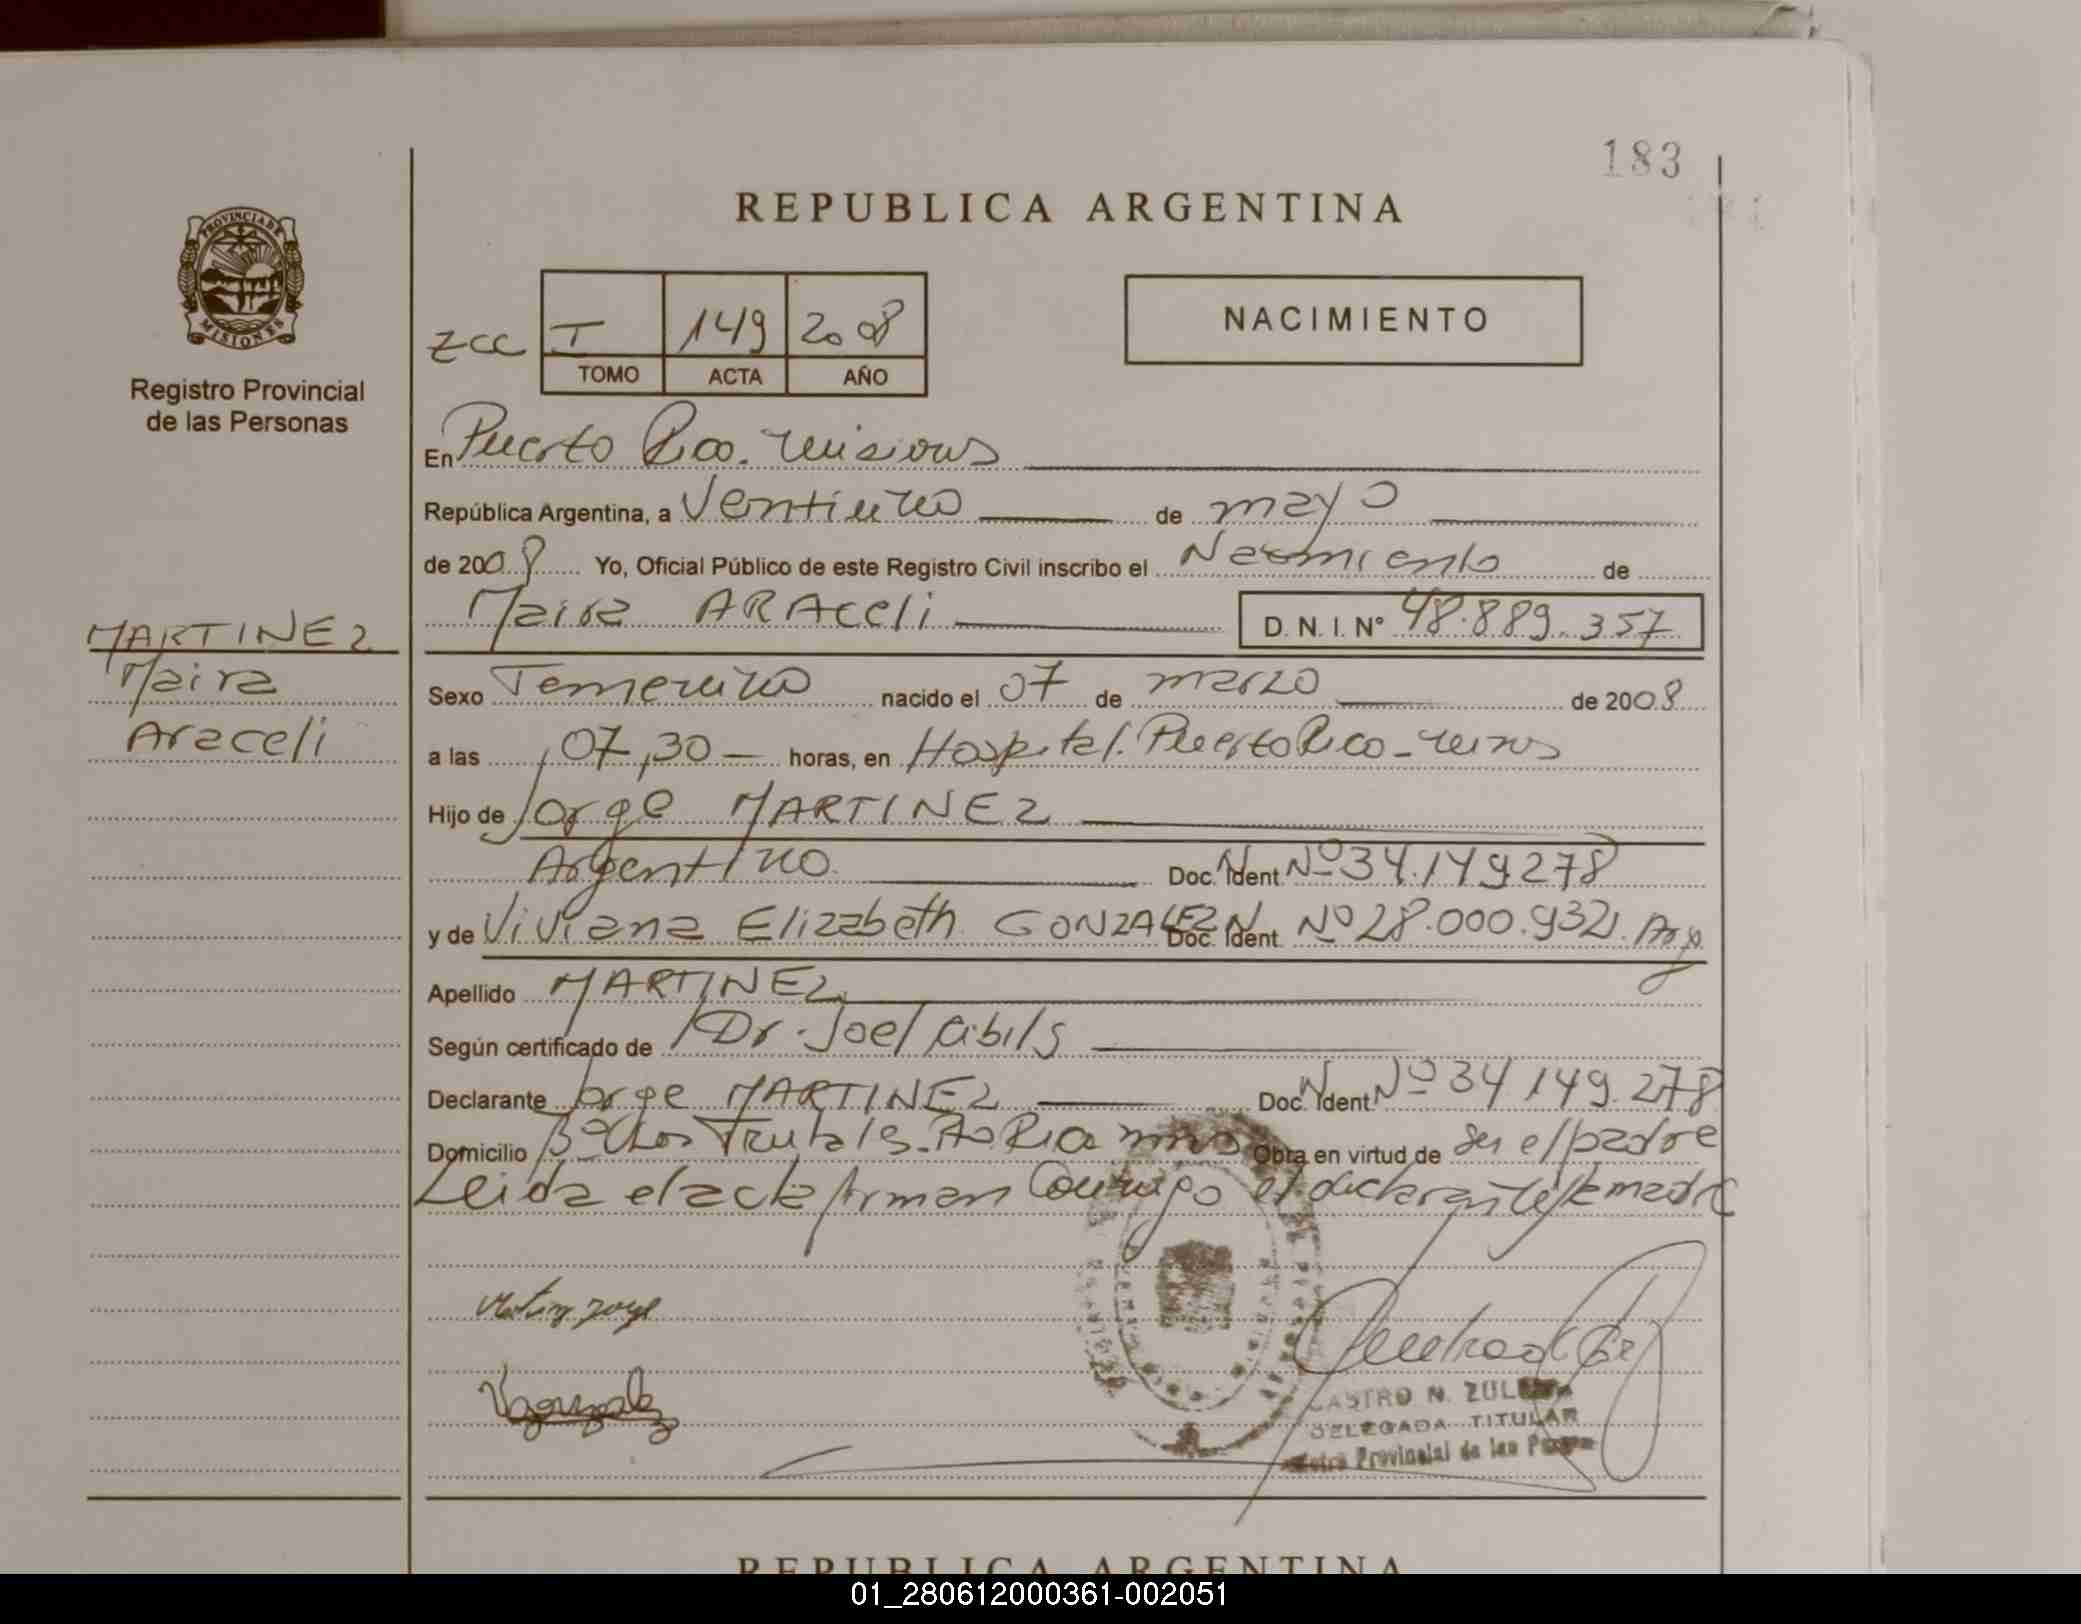 183
REPUBLICA ARGENTINA
PROVINCIA DE
MISIONES
Registro Provincial
de las Personas
zcc I 149 2008
TOMO ACTA AÑO
NACIMIENTO
En Puerto Rico. Misiones
República Argentina, a Ventiuno de mayo
de 2008 Yo, Oficial Público de este Registro Civil inscribo el Nacimiento de
Maira ARAceli D. N. I. N° 48.889.357
MARTINEZ
Maira
Araceli
Sexo Femenino nacido el 07 de marzo de 2008
a las 07,30 horas, en Hospital. Puerto Rico - Mnes
Hijo de Jorge MARTINEZ
Argentino Doc. Ident. Nº 34.149278
y de Viviana Elizabeth GONZALEZ Doc. Ident. Nº 28.000.932. Arg
Apellido MARTINEZ
Según certificado de Dr. Joel
Declarante Jorge MARTINEZ Doc. Ident. Nº 34 149.278
Domicilio Bº Los Frutales. Pto Rico Mnes Obra en virtud de ser el padre
Leida el acta firman Conmigo el declarante y la madre
Martinez Jorge
V gonzalez
CASTRO N. ZUL
DELEGADA TITULAR
Provincial de las
REPUBLICA ARGENTINA
01_280612000361-002051